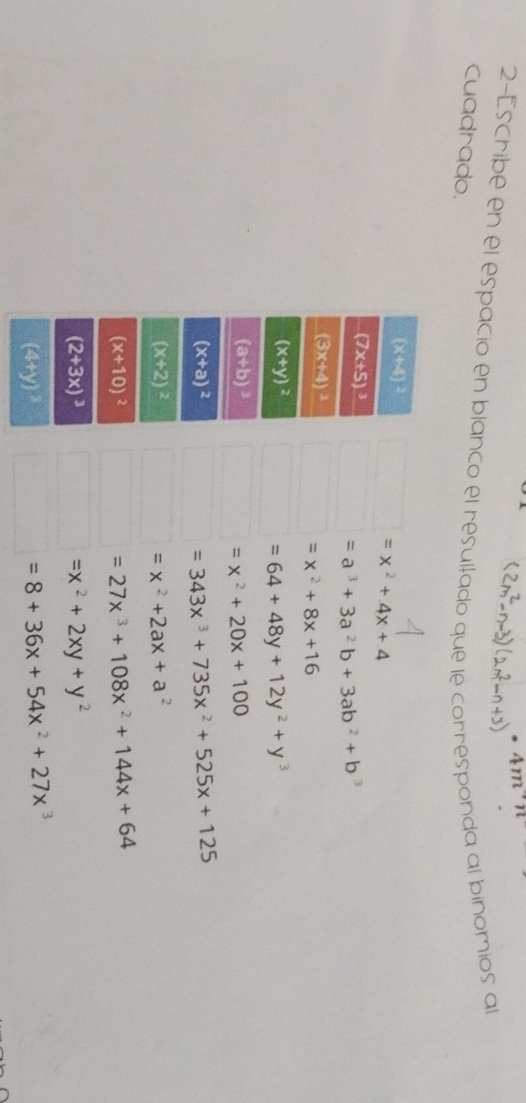 (2n²-n-3)(2n²-n+3)
• 4m⁴n²
2-Escribe en el espacio en blanco el resultado que le corresponda al binomios al
cuadrado.
(x+4)² = x² + 4x + 4
(7x+5)³ = a³ + 3a²b + 3ab² + b³
(3x+4)³ = x² + 8x +16
(x+y)² = 64 + 48y + 12y² + y³
(a+b)³ = x² + 20x + 100
(x+a)² = 343x³ + 735x² + 525x + 125
(x+2)² = x² +2ax + a²
(x+10)² = 27x³ + 108x² + 144x + 64
(2+3x)³ =x² + 2xy + y²
(4+y)³ = 8 + 36x + 54x² + 27x³